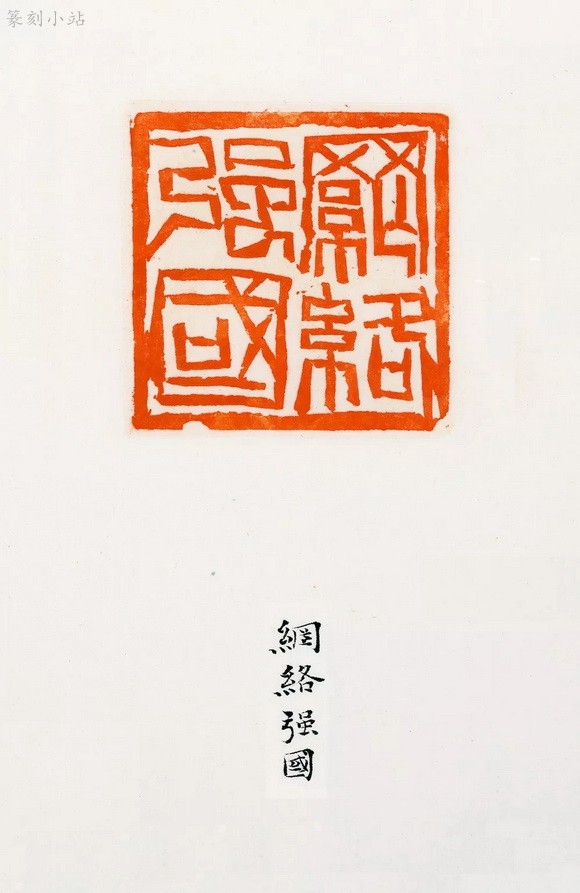 篆刻小站
網絡
强國
網
絡
强
國